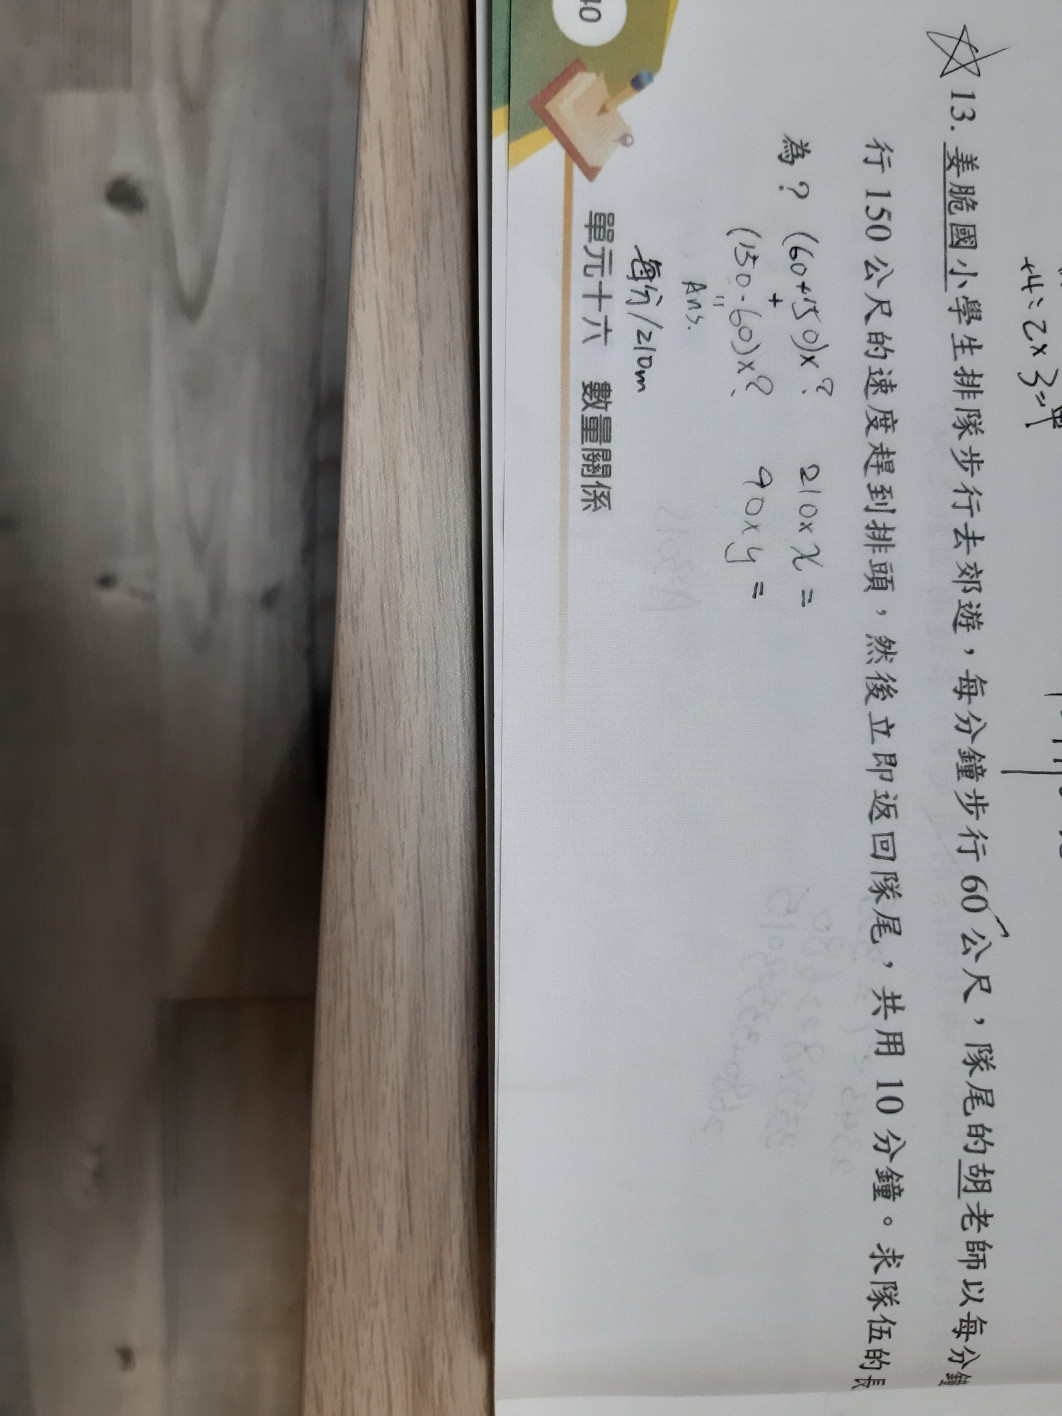 13. 姜脆國小學生排隊步行去郊遊，每分鐘步行 60 公尺，隊尾的胡老師以每分鐘
行 150 公尺的速度趕到排頭，然後立即返回隊尾，共用 10 分鐘。求隊伍的長
為？
(60+150)x? 210xx=
+
(150-60)x? 90xy=
=
Ans.
每分/210m
單元十六 數量關係
40
+4÷2x3=甲